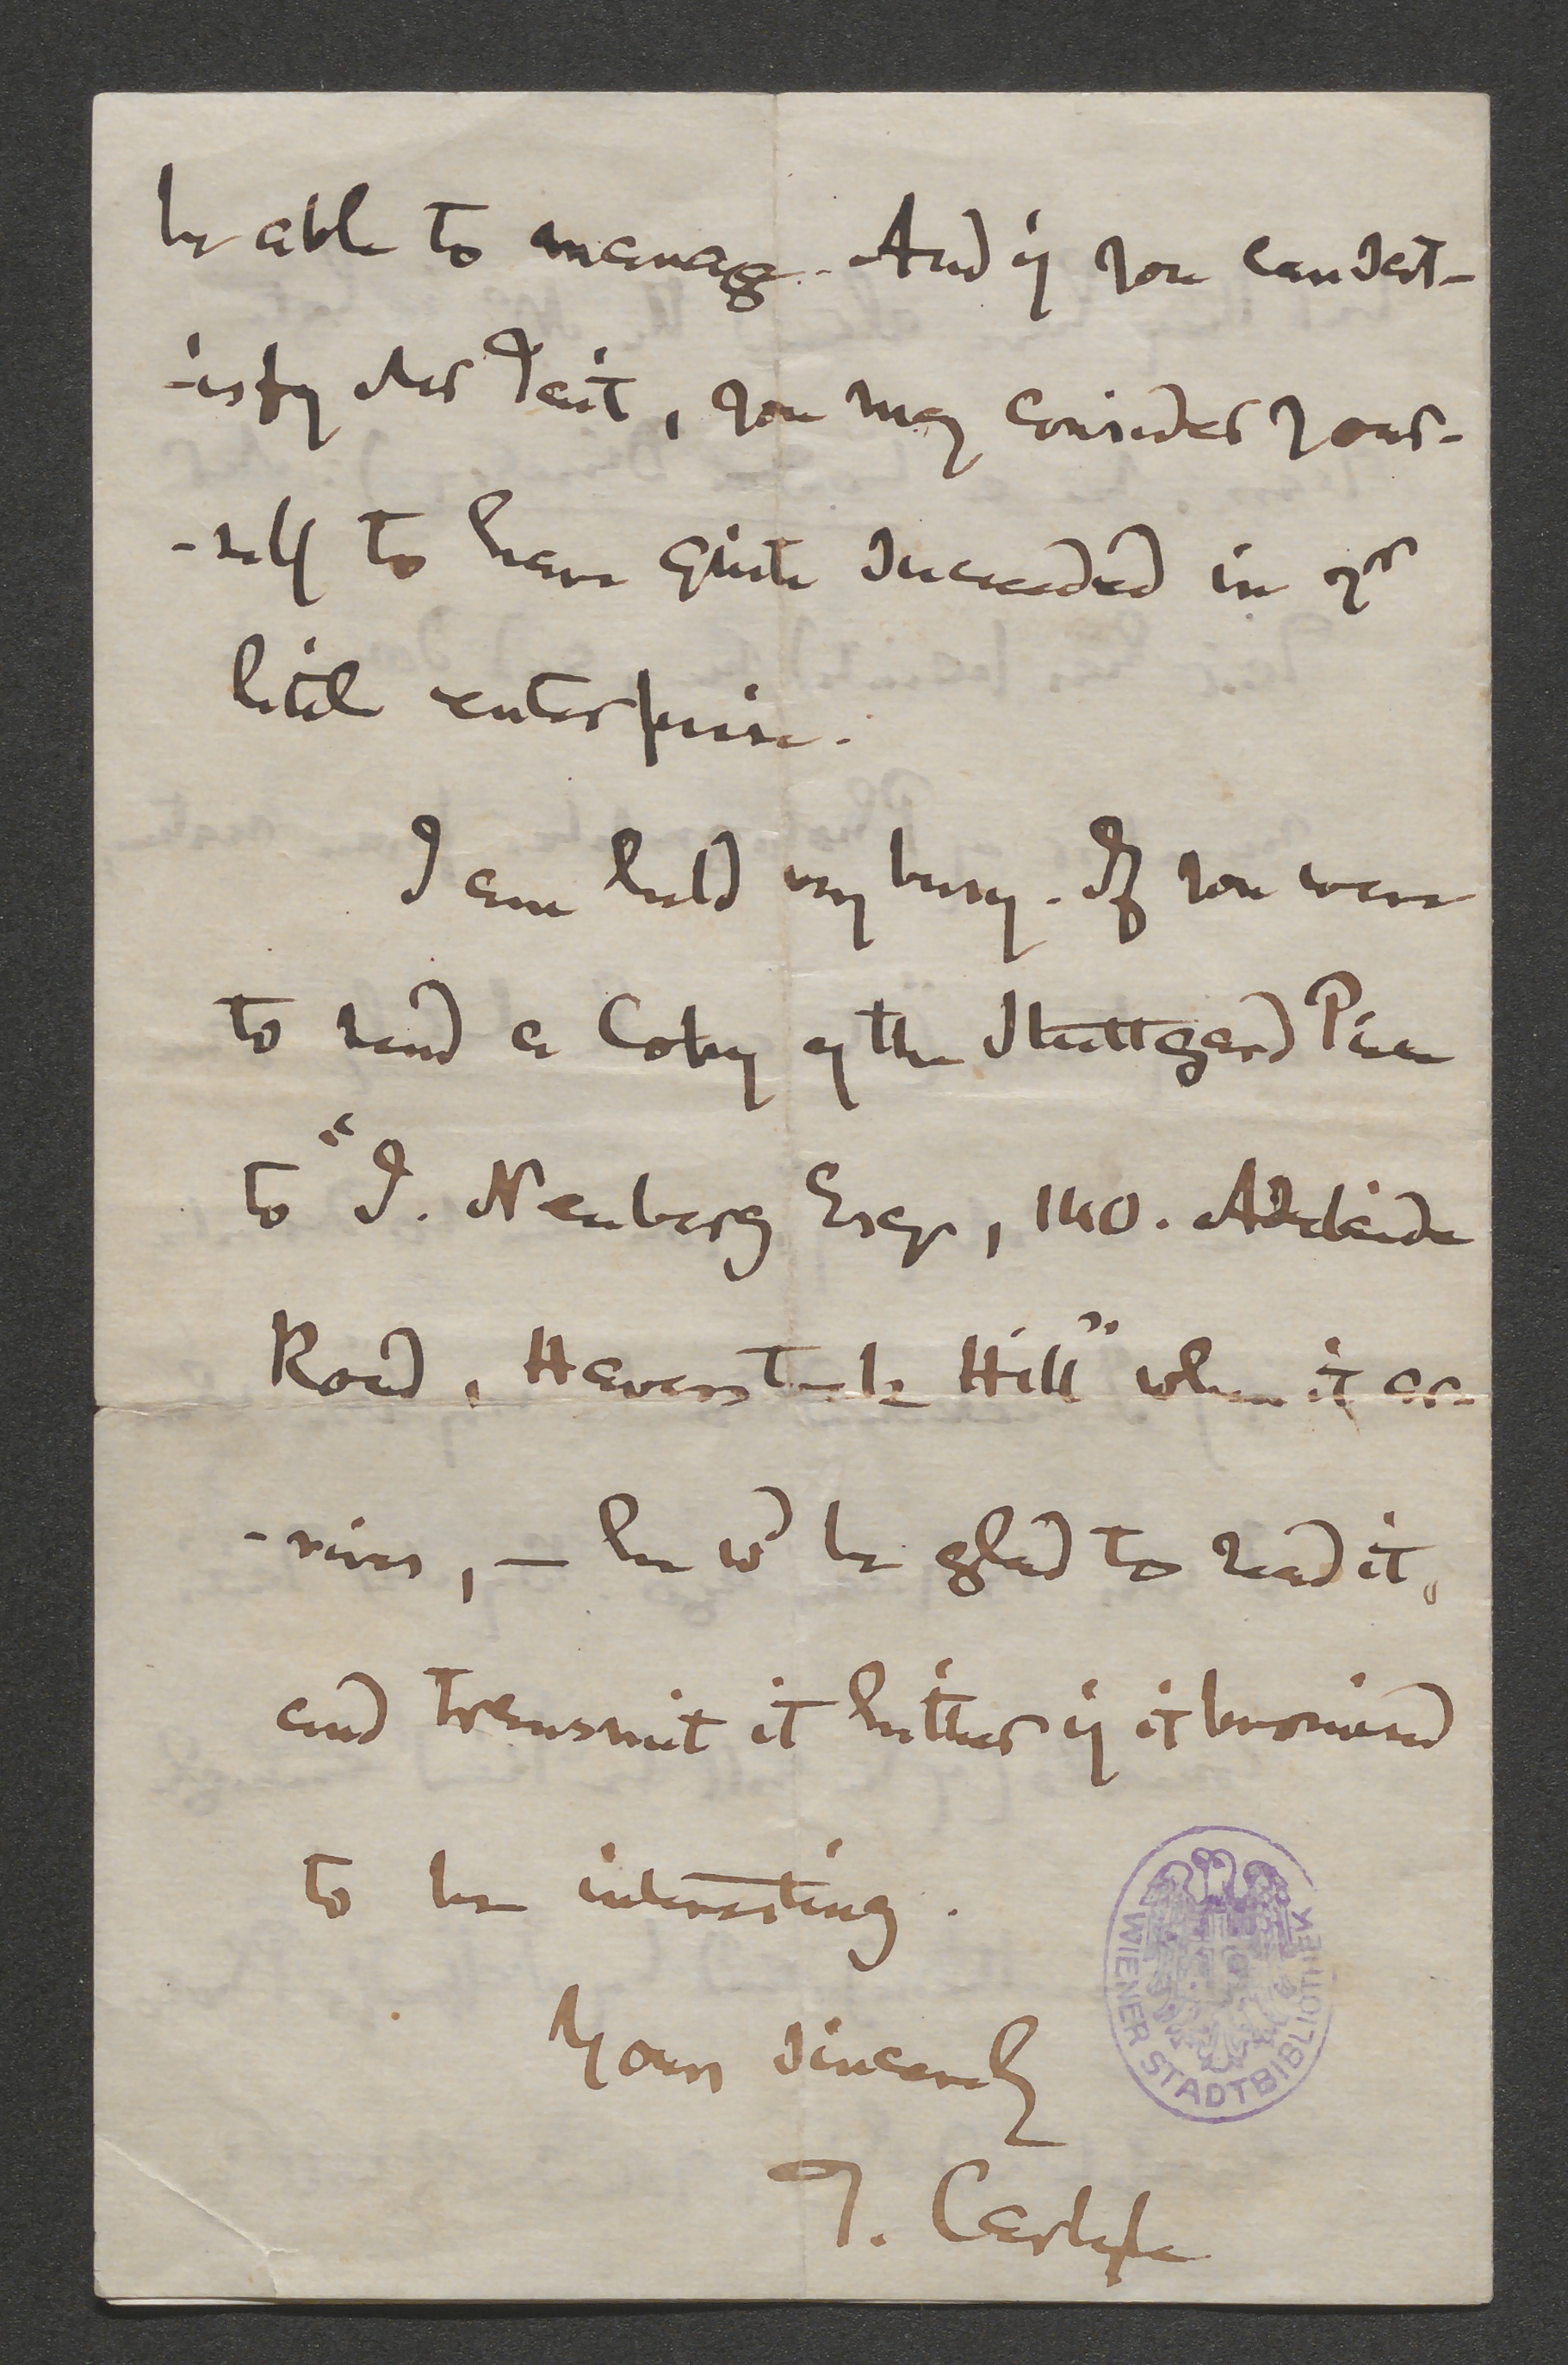 be able to manage. And if you can sat-
-isfy Mr Tait, you may consider your-
-self to have quite succeeded in yr
little enterprise.
I am held very busy. If you were
to send a Copy of the Stuttgard Piece
to "J. Neuberg Esqr, 140. Adelaide
Road, Haverstock Hill" when it ar-
-rives, — he wd be glad to read it,
and transmit it hither if it promised
to be interesting.
Yours sincerely
T. Carlyle
WIENER STADTBIBLIOTHEK